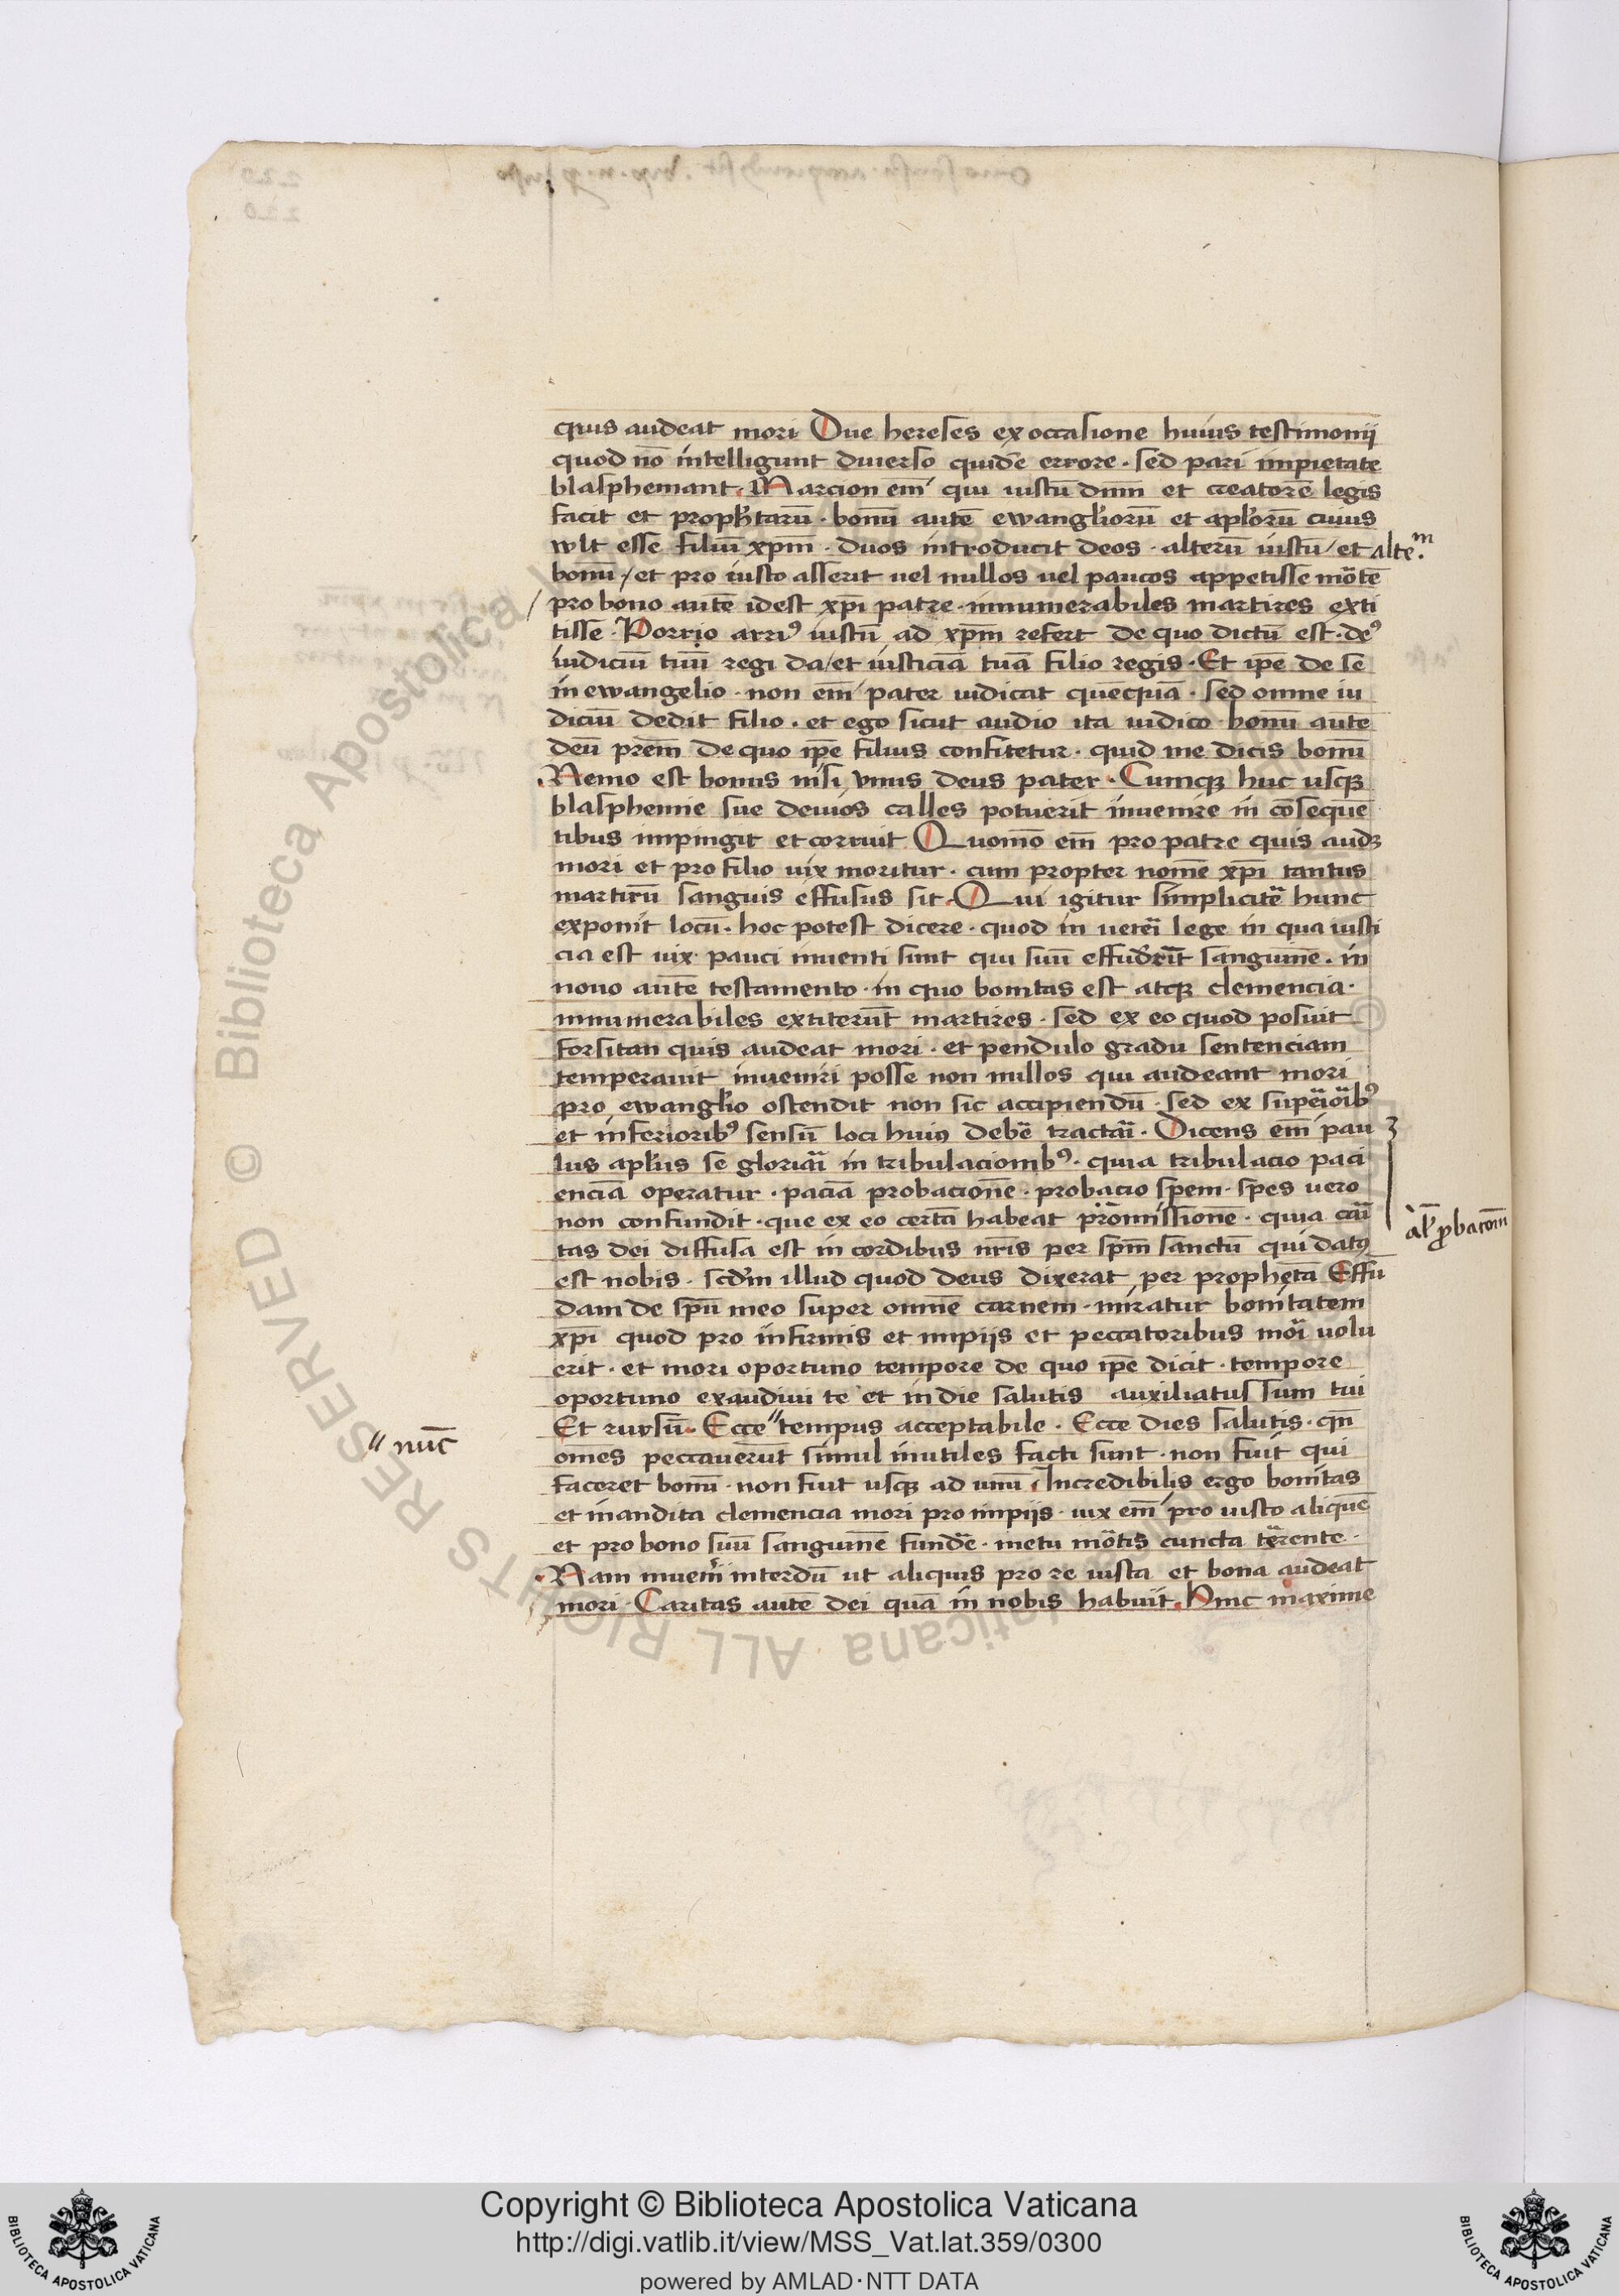 quis audeat mori Due hereses ex occasione huius testimonij
quod nō intelligunt diuerso quidē errore · sed pari impietate
blasphemant · Marcion em̄ qui iustū dnm̄ et creatorē legis
facit et prophꝫtarū · bonū autē ewangl̄iorū et apl̄orū cuius
wlt esse filiū xpm̄ · duos introducit deos · alterū iustū / et alte.m
bonū / et pro iusto asserit uel nullos uel paucos appetisse mōtē
/ pro bono autē idest xp̄i patre · innumerabiles martires exti
tisse · Porrio arriꝰ iustū ad xpm̄ refert de quo dictū est · deꝰ
iudiciū tuū regi da / et iusticiā tuā filio regis · Et ip̄e de se
in ewangelio · non em̄ pater iudicat quēcquā · sed omne iu
diciū dedit filio · et ego sicut audio ita iudico bonū aute
deū prēm de quo ip̄e filius confitetur · quid me dicis bonū
Nemo est bonus nisi vnus deus pater · Cumqꝫ huc usqꝫ
blasphemie sue deuios calles potuerit inuenire in cōsequē
tibus impingit et corruit Quomō em̄ pro patre quis audꝫ
mori et pro filio uix moritur · cum propter nomē xp̄i tantus
martirū sanguis effusus sit · Qui igitur simplicitē hunc
exponit locū · hoc potest dicere · quod in ueteī lege in qua iusti
cia est uix · pauci inuenti sunt qui suū effuderūt sanguinē · in
nouo autē testamento · in quo bonitas est atqꝫ clemencia ·
innumerabiles extiterūt martires · sed ex eo quod posuit
forsitan quis audeat mori · et pendulo gradu sentenciam
temperauit inueniri posse non nullos qui audeant mori
pro ewangl̄io ostendit non sic accipiendū · sed ex supeīoībꝰ
et inferioribꝰ sensū loci huiꝰ debē tractāi · Dicens em̄ pau
lus apl̄us se gloriāi in tribulacionibꝰ · quia tribulacio paci
enciā operatur · paciā probacionē · probacio spem · spes uero
non confundit · que ex eo certā habeat prōmissionē · quia cāi
al̄ ꝓbacōm̄
tas dei diffusa est in cordibus nr̄is per spm̄ sanctū qui datꝰ
est nobis · scdm̄ illud quod deus dixerat per prophetā Effū
dam de spū meo super omnē carnem · miratur bonitatem
xp̄i quod pro infirmis et impijs et peccatoribus mōi uolu
erit · et mori oportuno tempore de quo ip̄e dicit · tempore
oportuno exaudiui te et in die salutis auxiliatus sum tui
Et rursū · Ecce〃tempus acceptabile · Ecce dies salutis · qn̄
〃 nūc
omes peccauerūt simul inutiles facti sunt · non fuit qui
faceret bonū · non fuit usqꝫ ad unū · Incredibilis ergo bonitas
et inandita clemencia mori pro impijs · uix em̄ pro iusto aliquē
et pro bono suū sanguinē fundē · metu mōtis cuncta tērente ·
Nam inueni'i interdū ut aliquis pro re iusta et bona audeat
mori · Caritas autē dei quā in nobis habuit · Hinc maxime
Copyright © Biblioteca Apostolica Vaticana
http://digi.vatlib.it/view/MSS_Vat.lat.359/0300
powered by AMLAD·NTT DATA
BIBLIOTECA APOSTOLICA VATICANA
BIBLIOTECA APOSTOLICA VATICANA
© Biblioteca Apostolica Vaticana ALL RIGHTS RESERVED